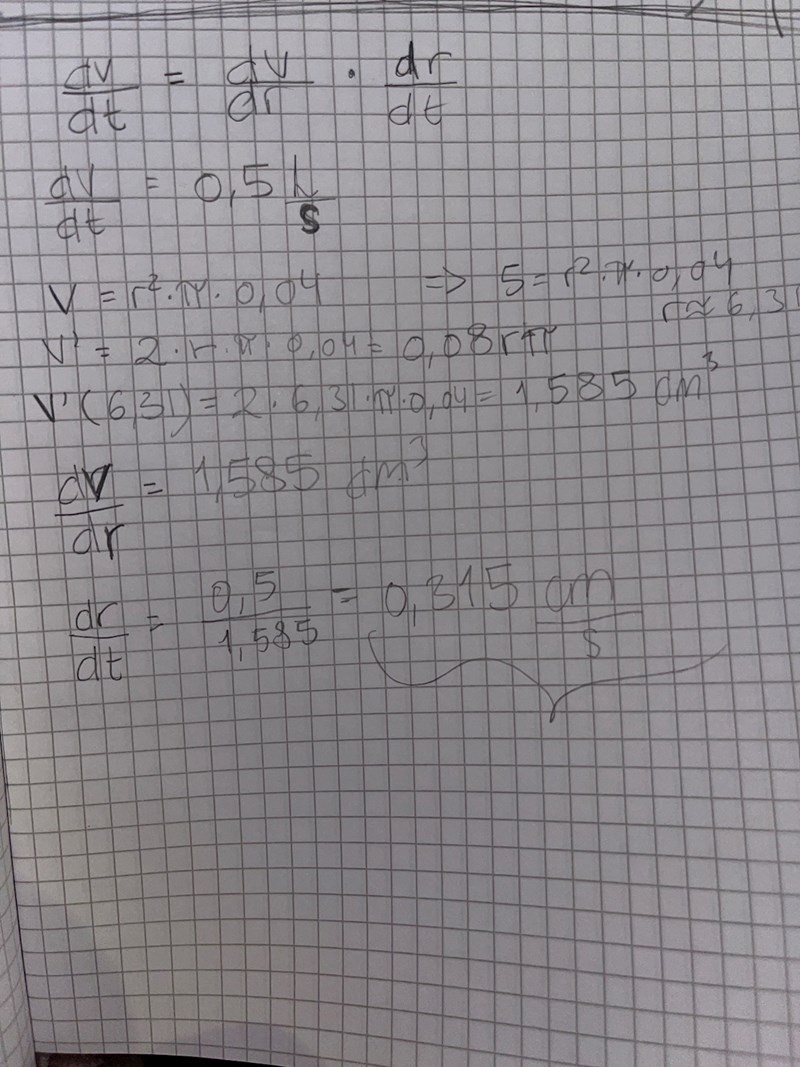 dV/dt = dV/dr · dr/dt
dV/dt = 0,5 L/s
V = r²·π·0,04 => 5 = r²·π·0,04
r ≈ 6,31
V' = 2·r·π·0,04 = 0,08rπ
V'(6,31) = 2·6,31·π·0,04 = 1,585 dm³
dV/dr = 1,585 dm³
dr/dt = 0,5/1,585 = 0,315 dm/s